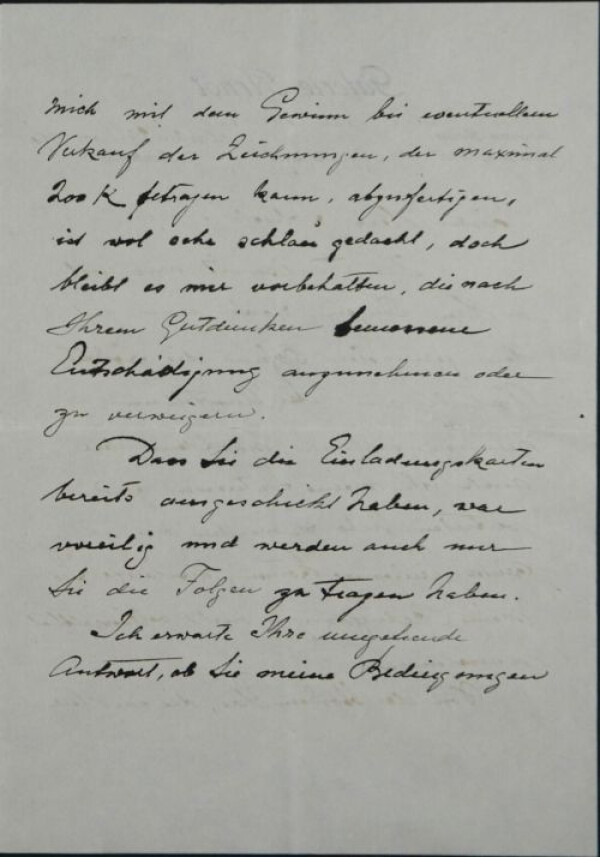 mich mit dem Gewinn bei eventuellem
Verkauf der Zeichnungen, der maximal
200 K betragen kann, abzufertigen,
ist wol sehr schlau gedacht, doch
bleibt es mir vorbehalten, die nach
Ihrem Gutdünken bemessene
Entschädigung anzunehmen oder
zu verweigern.
Dass Sie die Einladungskarten
bereits ausgeschickt haben, war
voreilig und werden auch nur
Sie die Folgen zu tragen haben.
Ich erwarte Ihre umgehende
Antwort, ob Sie meine Bedingungen